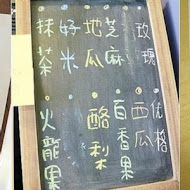 玫瑰
芝麻
地瓜
好米
抹茶
优格
西瓜
百香果
酪梨
火龍果